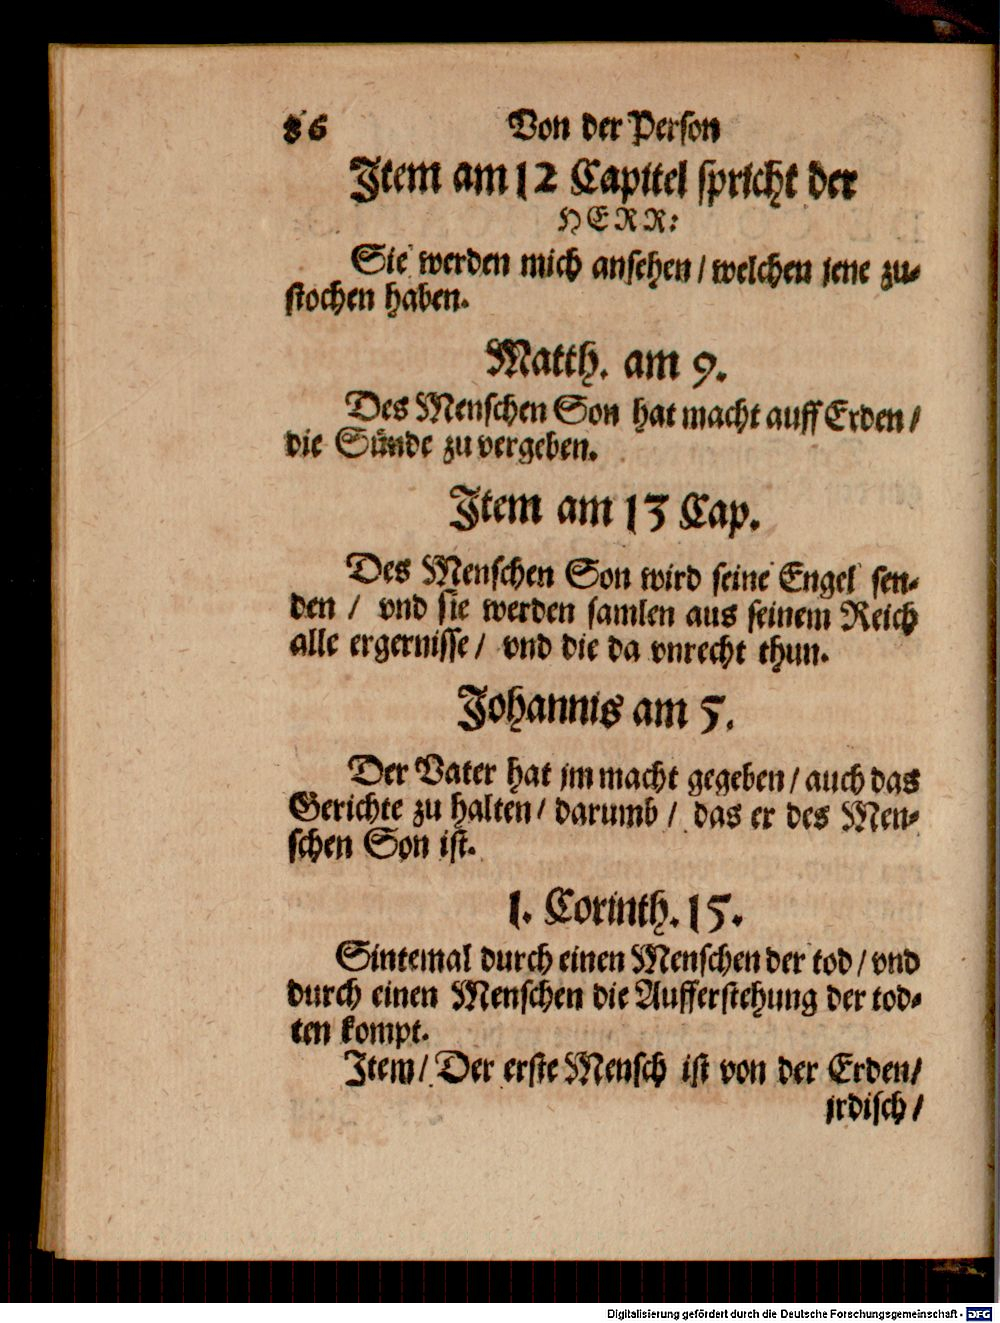 86 Von der Person
Item am 12 Capitel spricht der
HERR:
Sie werden mich ansehen / welchen jene zu-
stochen haben.
Matth. am 9.
Des Menschen Son hat macht auff Erden /
die Sünde zu vergeben.
Item am 13 Cap.
Des Menschen Son wird seine Engel sen-
den / vnd sie werden samlen aus seinem Reich
alle ergernisse / vnd die da vnrecht thun.
Johannis am 5.
Der Vater hat jm macht gegeben / auch das
Gerichte zu halten / darumb / das er des Men-
schen Son ist.
1. Corinth. 15.
Sintemal durch einen Menschen der tod / vnd
durch einen Menschen die Aufferstehung der tod-
ten kompt.
Item / Der erste Mensch ist von der Erden /
jrdisch /
Digitalisierung gefördert durch die Deutsche Forschungsgemeinschaft - DFG